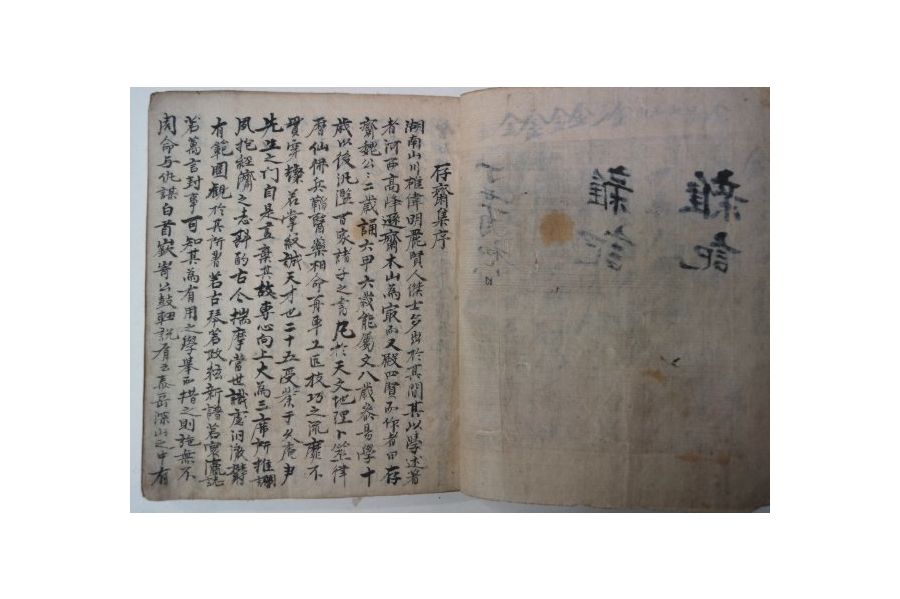 雜記
雜記
存齋集序
湖南山川雄偉明麗賢人傑士多出於其間其以學述著
者河西高峰遯齋木山為最而又殿四賢而作者曰存
齋魏公二歲誦六甲六歲能屬文八歲學易學十
歲以後汎濫百家諸子之書尤於天文地理卜筮律
曆仙佛兵韜醫藥相命舟車工匠技巧之流靡不
貫穿若掌紋誠天才也二十五受業于久庵尹
先生之門自是言棄其故專心向上大為三席所推
夙抱經濟之志斟酌古今揣摩當世識慮
有範圍觀於其所習若古琴若政絃新譜若
若萬言封事可知其為有用之學舉而措之則施無不
周命与仇謀白首嶔寄公說有云泰岳深山之中有